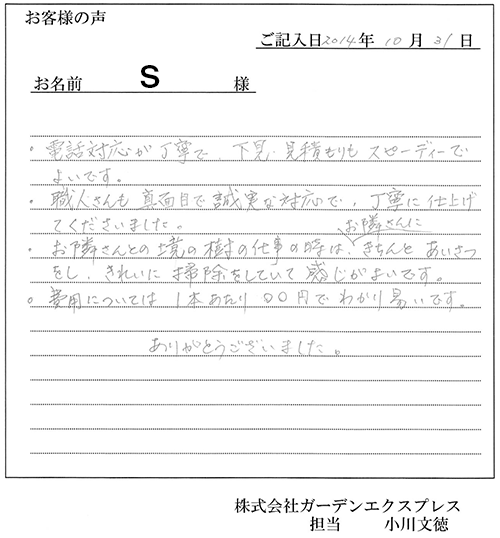 お客様の声
ご記入日2014年 10月 31日
お名前 S 様
・電話対応が丁寧で、下見・見積もりも スピーディーで
よいです。
・職人さんも 真面目で誠実な対応で、丁寧に仕上げ
てくださいました。
お隣さんに
・お隣さんとの境の樹の仕事の時は、きちんと あいさつ
をし、きれいに 掃除をしていて 感じがよいです。
・費用については 1本あたり 〇〇円で わかり易いです。
ありがとうございました。
株式会社ガーデンエクスプレス
担当 小川文徳